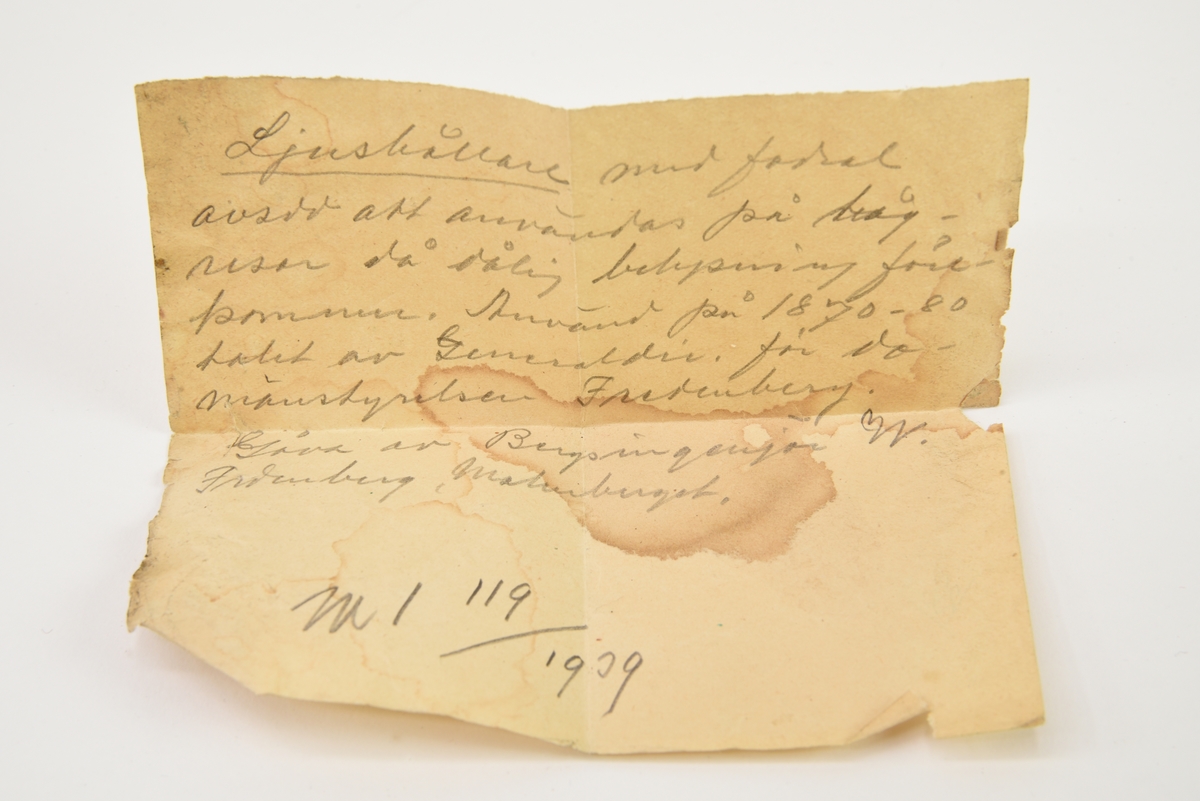 Ljushållare med fodral
avsedd att användas på tåg-
resor då dålig belysning före-
kommer. Använd på 1870-80
talet av Generaldir. för do-
mänstyrelsen Fredenberg.
Gåva av Bergsingenjör W.
Fredenberg, Malmberget.
M 1 119
1939